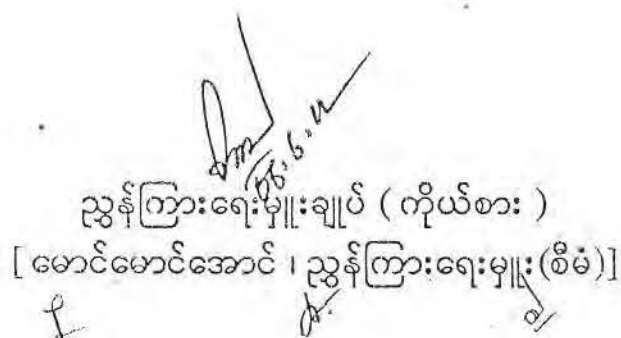 ညွှန်ကြားရေးမှူးချုပ် ( ကိုယ်စား )
[ မောင်မောင်အောင် ၊ ညွှန်ကြားရေးမှူး(စီမံ)]